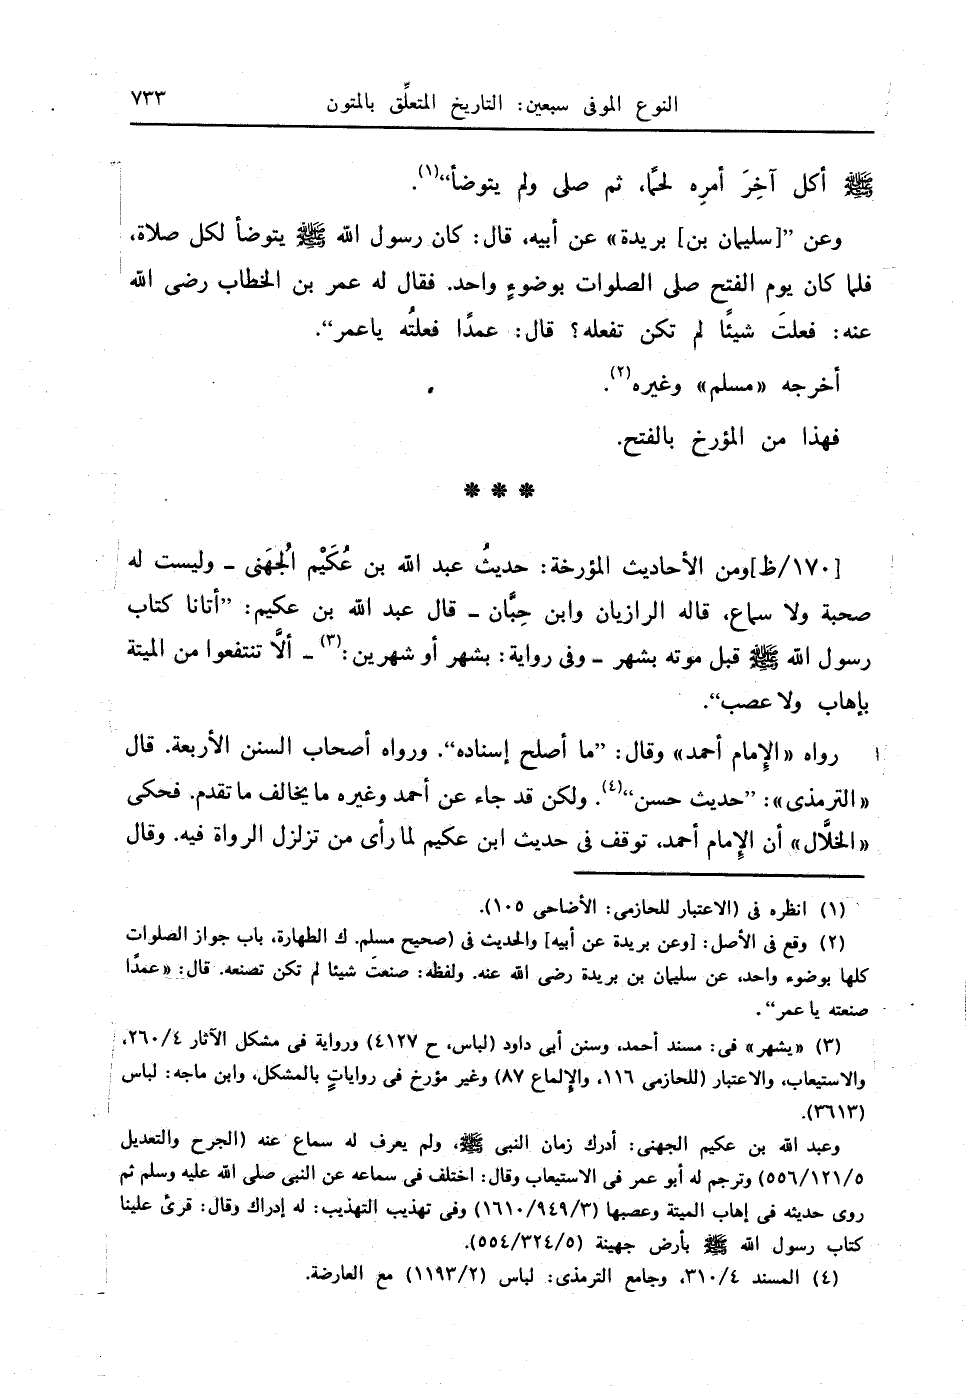 النوع الموفى سبعين: التاريخ المتعلِّق بالمتون ٧٣٣
ﷺ أكل آخِرَ أمرِه لحمًا، ثم صلى ولم يتوضأ“(١).
وعن ”[سليمان بن] بريدة» عن أبيه، قال: كان رسول الله ﷺ يتوضأ لكل صلاة،
فلما كان يوم الفتح صلى الصلوات بوضوءٍ واحد. فقال له عمر بن الخطاب رضى الله
عنه: فعلتَ شيئًا لم تكن تفعله؟ قال: عمدًا فعلتُه ياعمر“.
أخرجه «مسلم» وغيره(٢).
فهذا من المؤرخ بالفتح.
* * *
[١٧٠/ظ]ومن الأحاديث المؤرخة: حديثُ عبد الله بن عُكَيْم الُجهَنى ـ وليست له
صحبة ولا سماع، قاله الرازيان وابن حِبَّان ـ قال عبد الله بن عكيم: ”أتانا كتاب
رسول الله ﷺ قبل موته بشهر ـ وفى رواية: بشهر أو شهرين:(٣) ـ ألَّا تنتفعوا من الميتة
بإهاب ولا عصب“.
رواه «الإمام أحمد» وقال: ”ما أصلح إسناده“. ورواه أصحاب السنن الأربعة. قال
«الترمذى»: ”حديث حسن“(٤). ولكن قد جاء عن أحمد وغيره ما يخالف ما تقدم. فحكى
«الخلَّال» أن الإمام أحمد، توقف فى حديث ابن عكيم لما رأى من تزلزل الرواة فيه. وقال
(١) انظره فى (الاعتبار للحازمى: الأضاحى ١٠٥).
(٢) وقع فى الأصل: [وعن بريدة عن أبيه] والحديث فى (صحيح مسلم. ك الطهارة، باب جواز الصلوات
كلها بوضوء واحد، عن سليمان بن بريدة رضى الله عنه. ولفظه: صنعتَ شيئا لم تكن تصنعه. قال: «عمدًا
صنعته يا عمر“.
(٣) «يشهر» فى: مسند أحمد، وسنن أبى داود (لباس، ح ٤١٢٧) ورواية فى مشكل الآثار ٢٦٠/٤،
والاستيعاب، والاعتبار (للحازمى ١١٦، والإلماع ٨٧) وغير مؤرخ فى رواياتٍ بالمشكل، وابن ماجه: لباس
(٣٦١٣).
وعبد الله بن عكيم الجهنى: أدرك زمان النبى ﷺ، ولم يعرف له سماع عنه (الجرح والتعديل
٥٥٦/١٢١/٥) وترجم له أبو عمر فى الاستيعاب وقال: اختلف فى سماعه عن النبى صلى الله عليه وسلم ثم
روى حديثه فى إهاب الميتة وعصبها (١٦١٠/٩٤٩/٣) وفى تهذيب التهذيب: له إدراك وقال: قرئ علينا
كتاب رسول الله ﷺ بأرض جهينة (٥٥٤/٣٢٤/٥).
(٤) المسند ٣١٠/٤، وجامع الترمذى: لباس (١١٩٣/٢) مع العارضة.